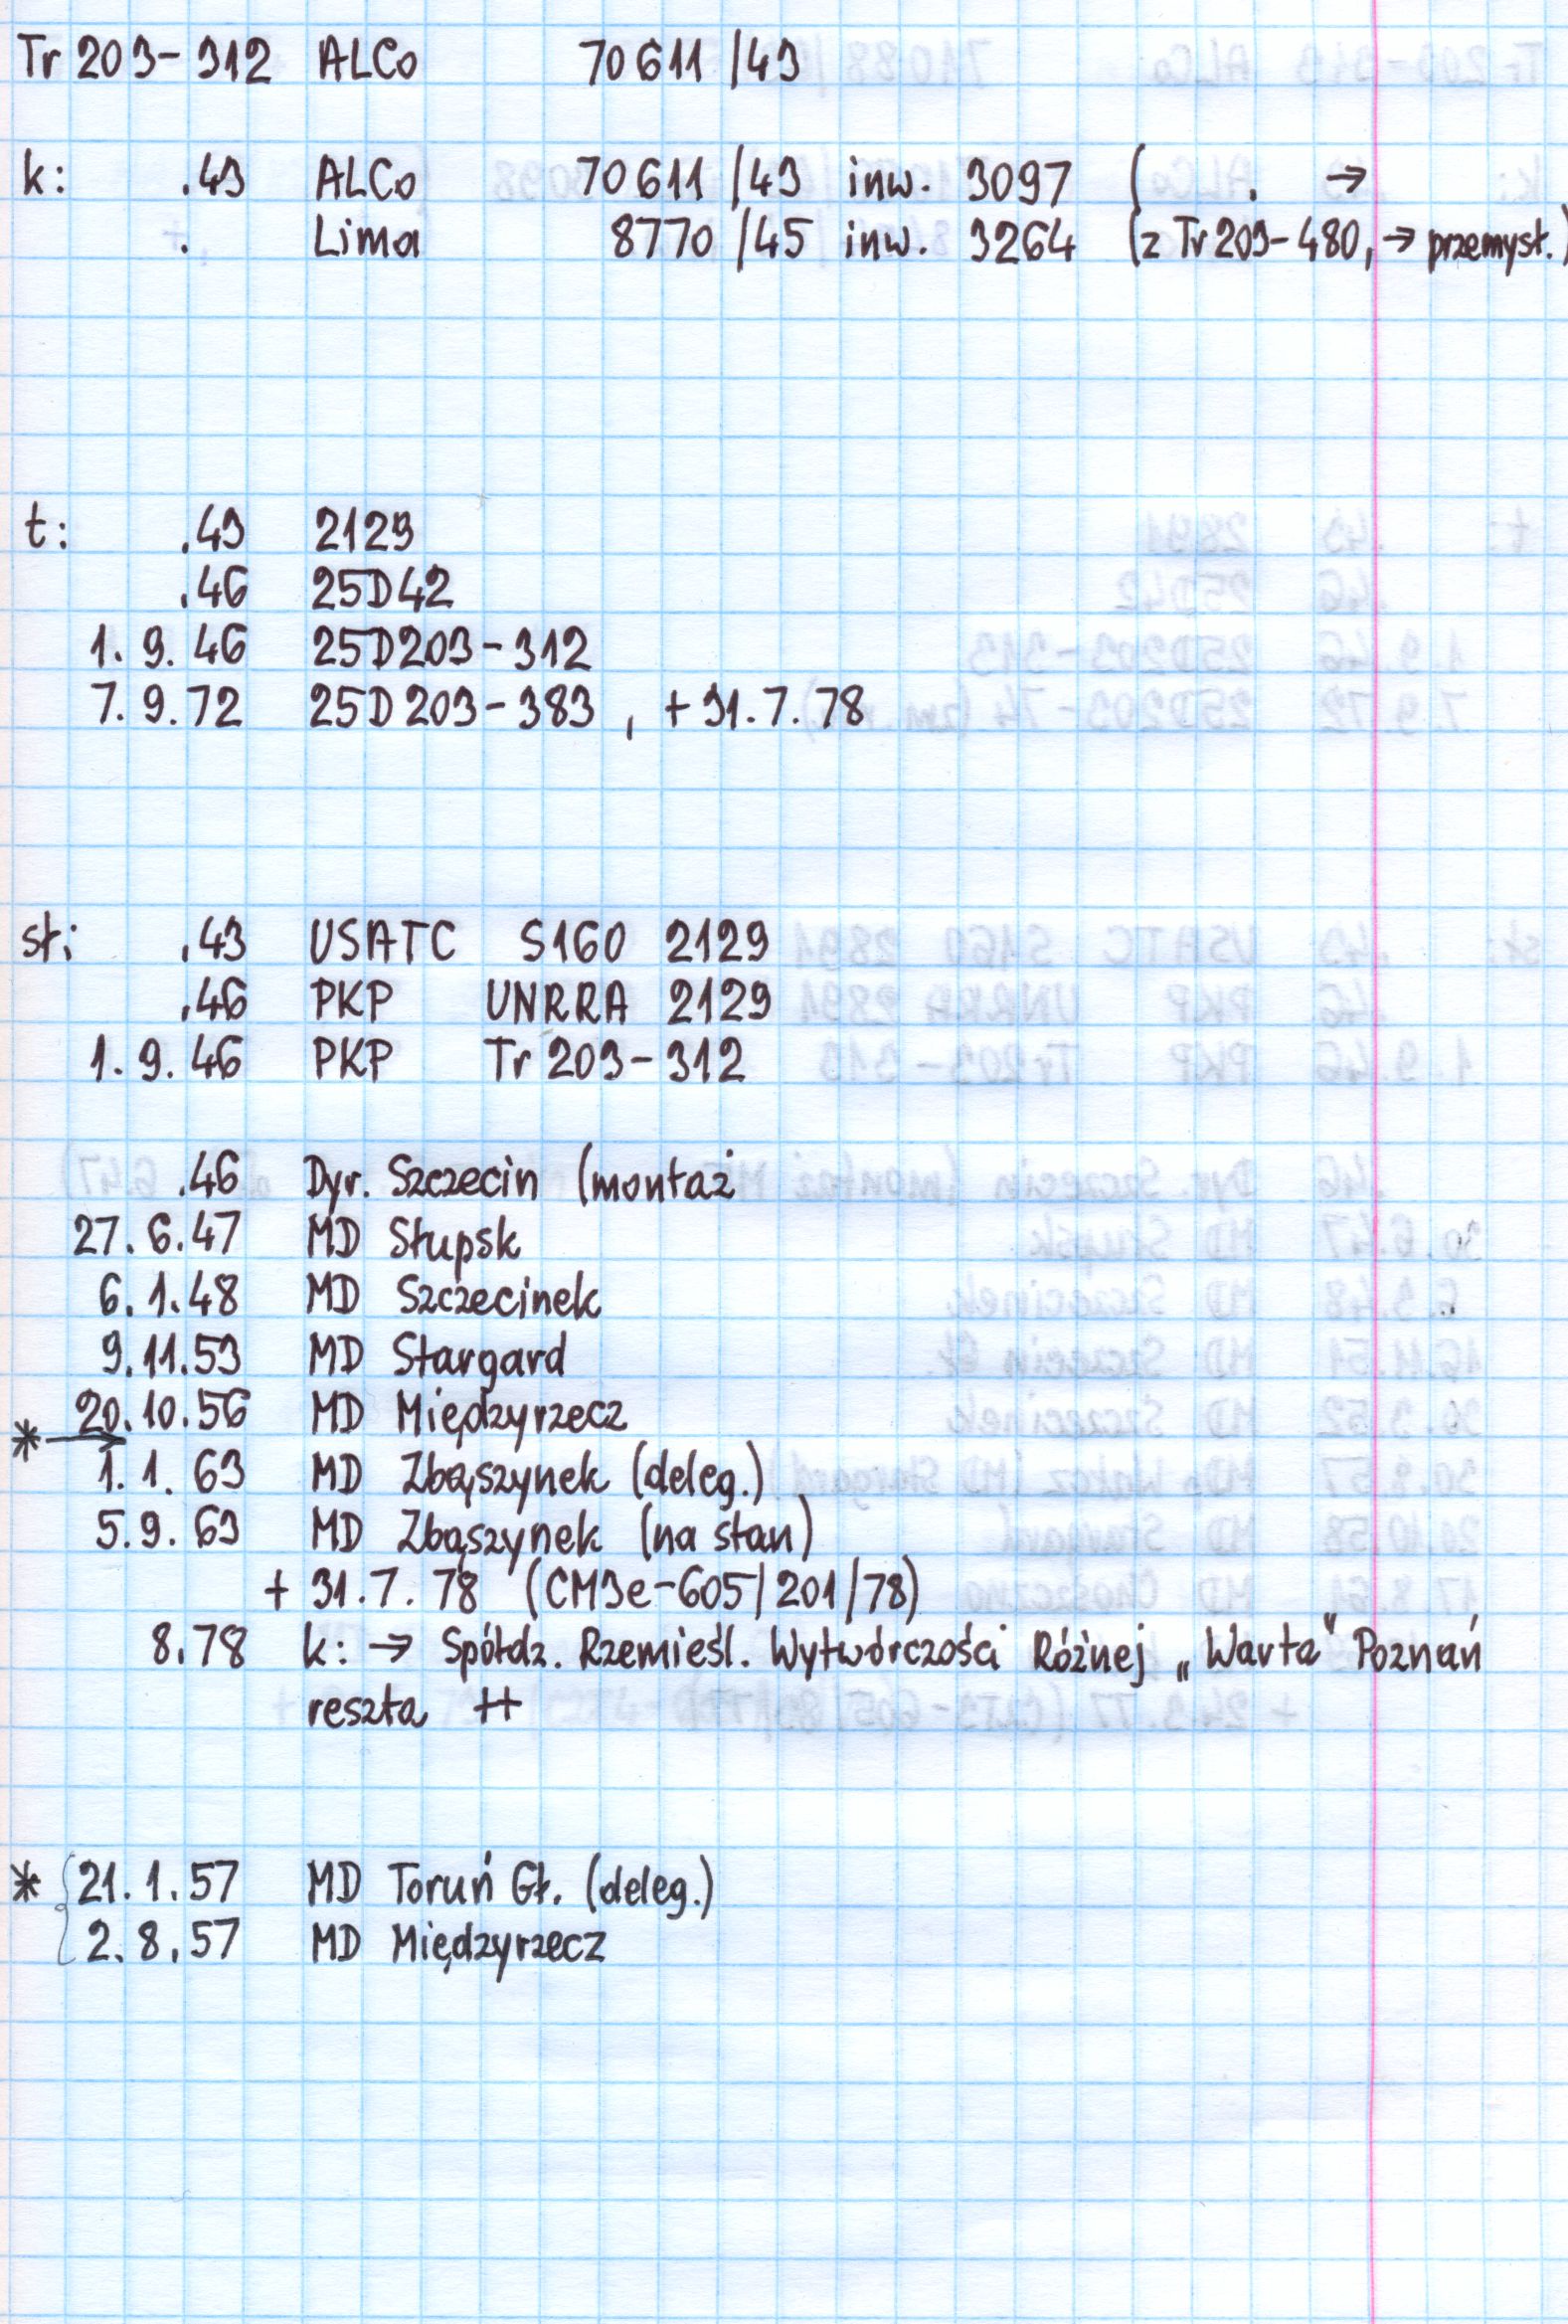 Tr 203-312 ALCo 70611/43
k: .43 ALCo 70611/43 inw. 3097 ( . →
. Lima 8770/45 inw. 3264 (z Tr 203-480, → przemysł.)
t: .43 2129
.46 25D42
1.9.46 25D203-312
7.9.72 25D203-383, +31.7.78
st: .43 USATC S160 2129
.46 PKP UNRRA 2129
1.9.46 PKP Tr 203-312
.46 Dyr. Szczecin (montaż
27.6.47 MD Słupsk
6.1.48 MD Szczecinek
9.11.53 MD Stargard
20.10.56 MD Międzyrzecz
* →
1.1.63 MD Zbąszynek (deleg.)
5.9.63 MD Zbąszynek (na stan)
+ 31.7.78 (CM3e-605/201/78)
8.78 k: → Spółdz. Rzemieśl. Wytwórczości Różnej „Warta" Poznań
reszta ++
* { 21.1.57 MD Toruń Gł. (deleg.)
2.8.57 MD Międzyrzecz